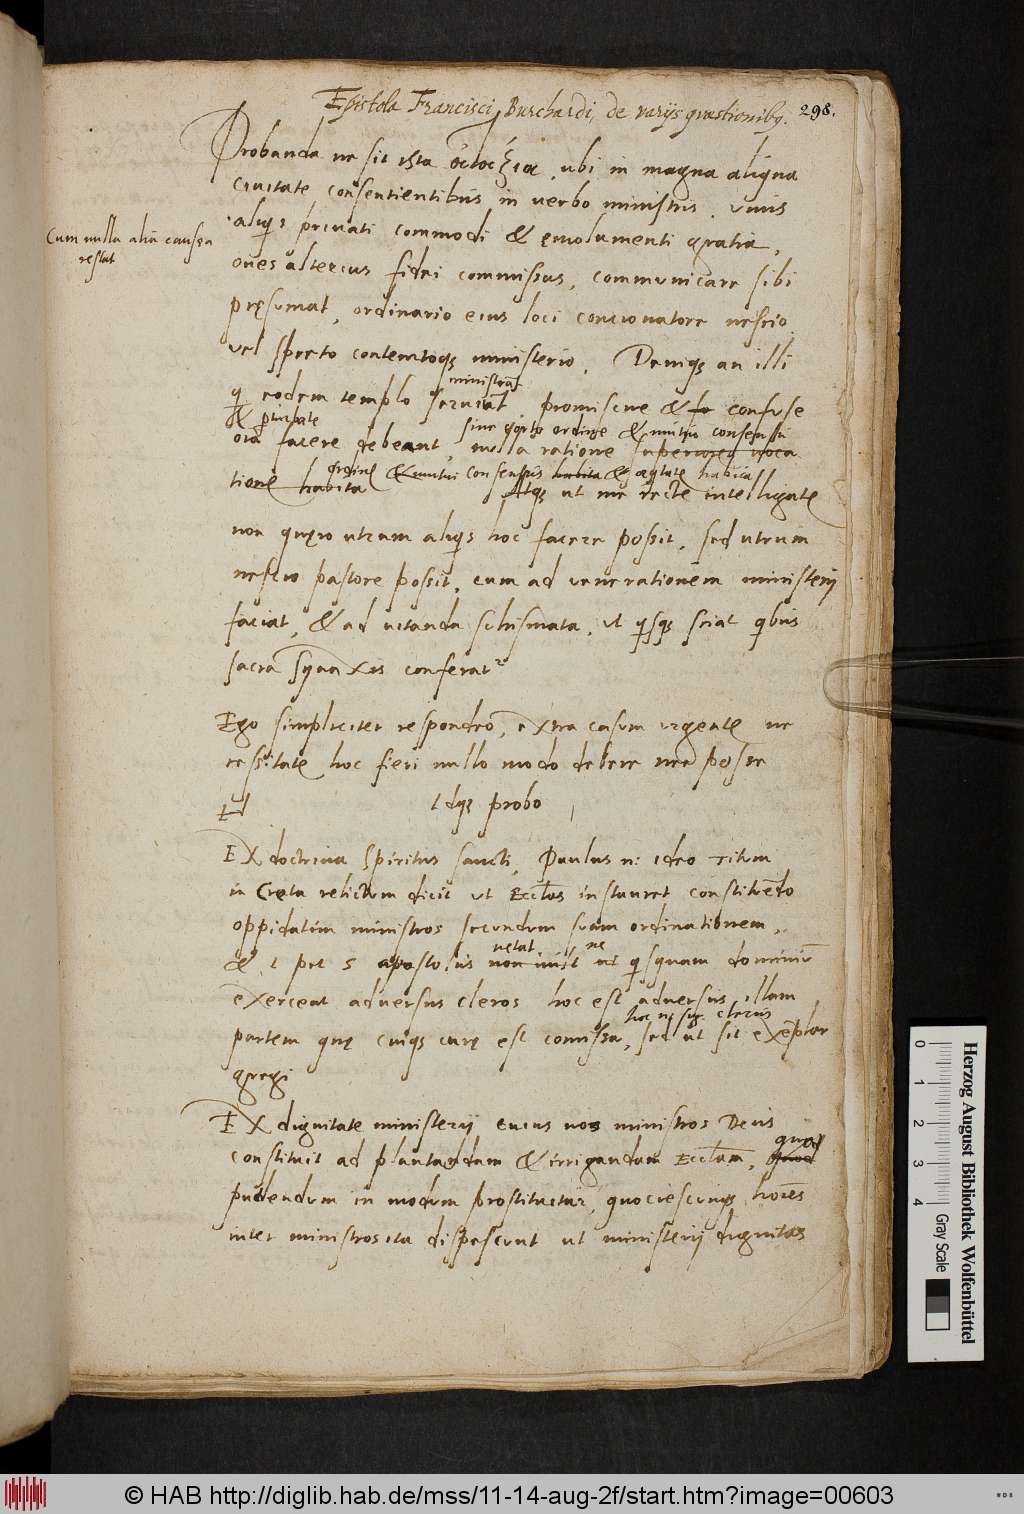 Epistola Francisci Burchardi, de varijs quæstionibꝫ. 298.
Probanda ne sit ista ἀταξία, ubi in magna aliqua
ciuitate consentientibus in uerbo ministris, unus
aliqs priuati commodi & emolumenti gratia,
Cum nulla alia caussa
restat
oues alterius fidei commissas, communicare sibi
pręsumat, ordinario eius loci concionatore nescio
vel spreto contemtoqꝫ ministerio. Deniqꝫ an illi
ministrãt
q eodem templo seruiãt, promiscue & confuse
& pturbate
sine ordine & mutui consensu
oĩa facere debeant, nulla ratione
ordinẽ & mutui consensus habita & habita
tionẽ habita Atqꝫ ut me recte intelligatẽ
non quęro utrum aliqs hoc facere possit, sed utrum
nescio pastore possit, cum ad uenerationem ministerij
faciat, & ad uitanda schismata, ut qsqꝫ sciat qbus
sacra Synaxis conferat
Ego simpliciter respondeo, extra casum urgentẽ ne
cessitatẽ hoc fieri nullo modo debere nec posse
Idqꝫ probo
EX doctrina Spiritus sancti, Paulus n: ideo Titum
in Creta relictum dicit ut Eccl̃as instauret constituẽdo
oppidatim ministros secundum suam ordinationem,
uetat ne
& 1 pet 5 apostolus non uult ut qsquam dominiũ
exerceat aduersus cleros hoc est aduersus illam
hoc clerus
partem quę cuiqꝫ curę est comissa, sed ut sit exẽplar
gregi
EX dignitate ministerij cuius nos ministros Deus
constituit ad plantandam & irrigandam Eccl̃am,
quod
pudendum in modum prostituitur, quociescunqꝫ hoĩes
inter ministros ita dispescunt ut ministerij dignitas
0 1 2 3 4
Herzog August Bibliothek Wolfenbüttel
Gray Scale
© HAB http://diglib.hab.de/mss/11-14-aug-2f/start.htm?image=00603